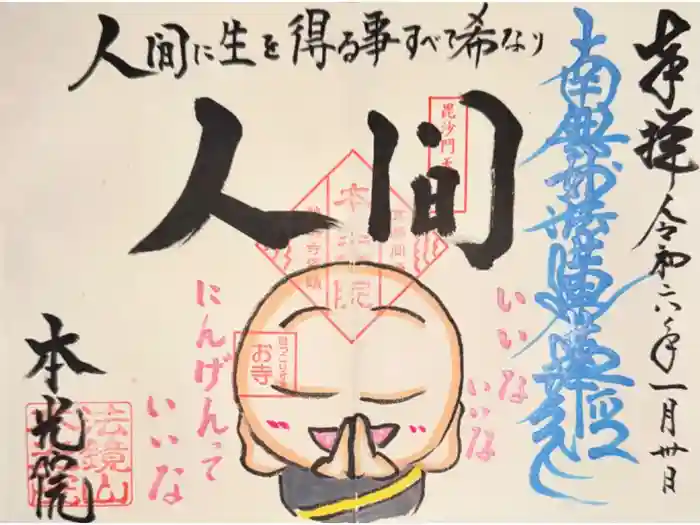 奉拝
令和六年一月卅日
南無妙法蓮華経
人間に生を得る事すべて希なり
人間
毘沙門天
本光院
ほっこりする
お寺
いいな
いいな
にんげんって
いいな
本光院
法鏡山